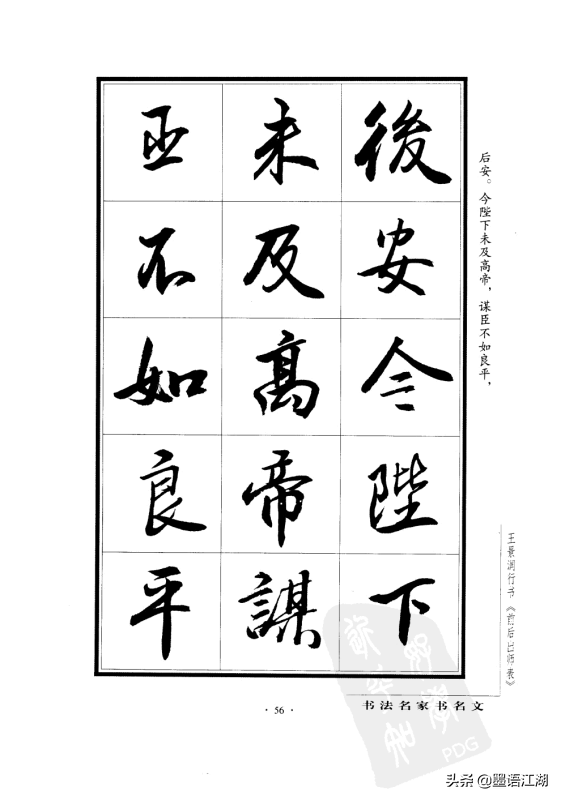 後安今陛下
未及高帝謀
臣不如良平
后安。今陛下未及高帝，谋臣不如良平，
王景润行书《前后出师表》
书法名家书名文
· 56 ·
PDG
头条 @墨语江湖